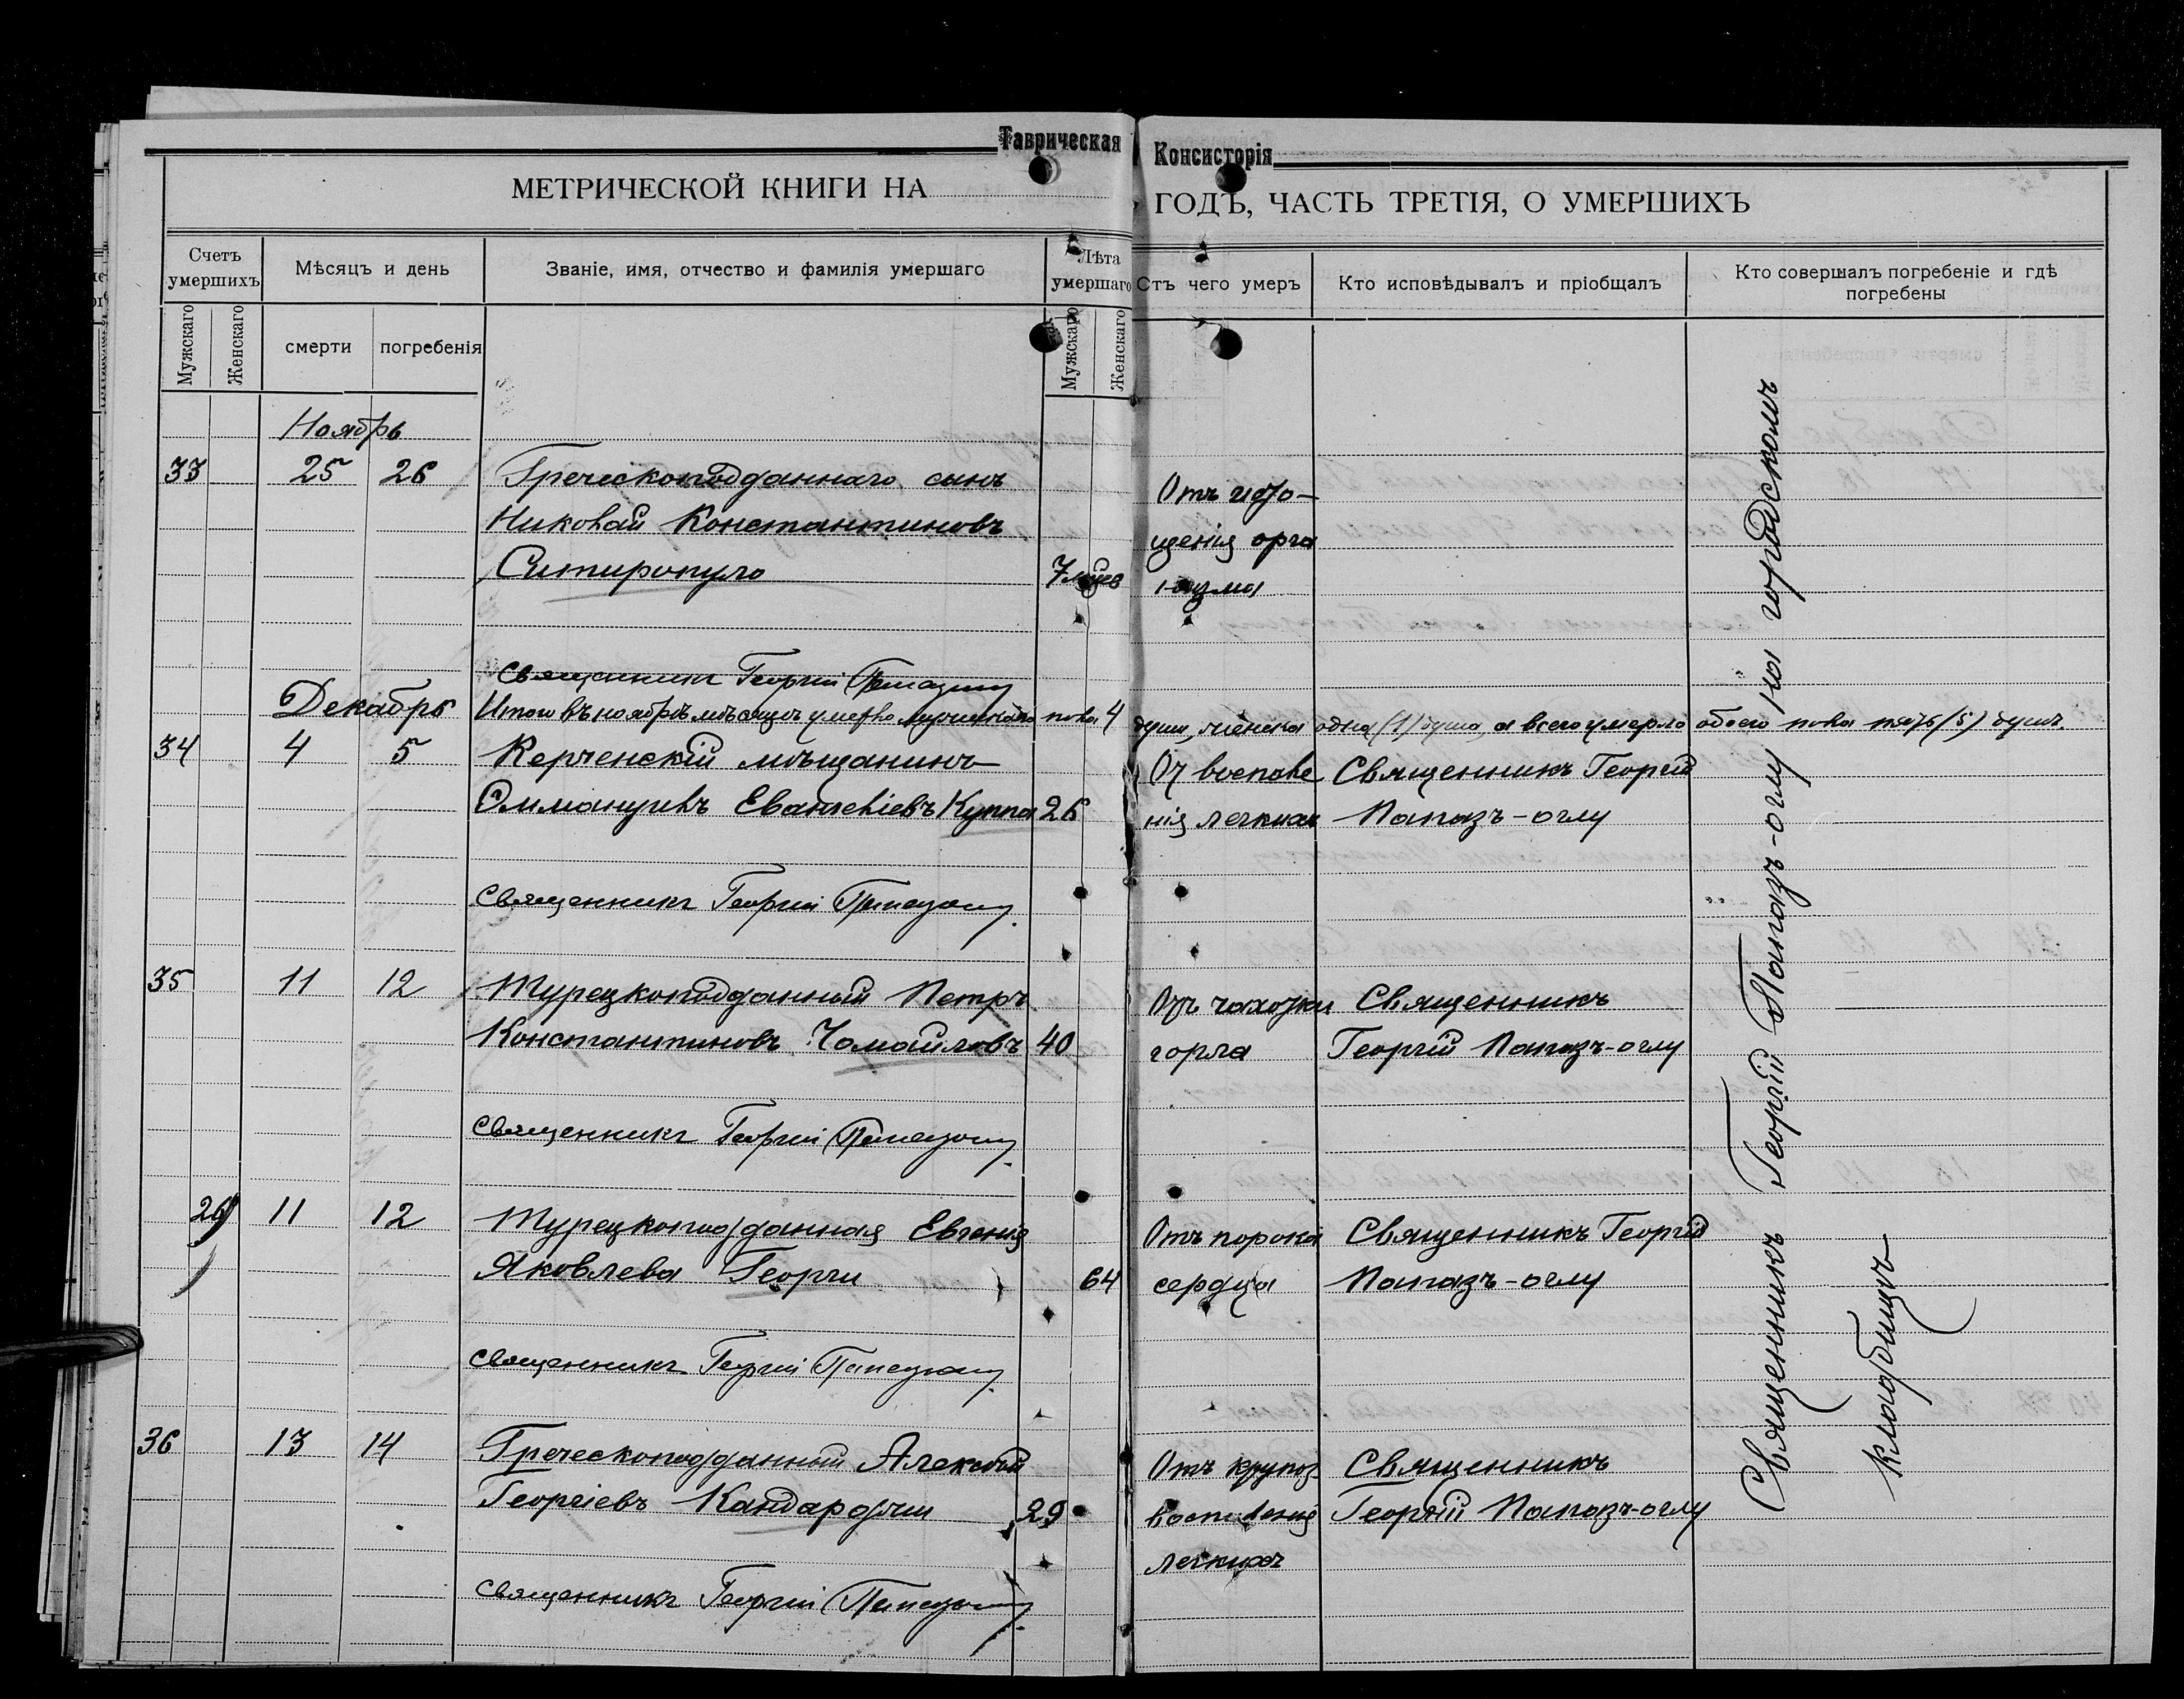 Таврическая Консисторія
МЕТРИЧЕСКОЙ КНИГИ НА ГОДЪ, ЧАСТЬ ТРЕТІЯ, О УМЕРШИХЪ
Счетъ умершихъ
Мѣсяцъ и день
Званіе, имя, отчество и фамилія умершаго
Лѣта умершаго
Отъ чего умеръ
Кто исповѣдывалъ и пріобщалъ
Кто совершалъ погребеніе и гдѣ погребены
Мужскаго
Женскаго
смерти
погребенія
Мужскаго
Женскаго
Ноябрь
33 25 26 Греческоподданнаго сынъ
Николай Константиновъ
Ситиропуло
7 мѣсяцев
Отъ исто-
щенія орга
низма
Священникъ Георгій Папазоглу
Декабрь
Итого въ ноябрѣ мѣсяцѣ умерло мужескаго пола 4 души, женска одна (1) душа, а всего умерло обоего пола пять (5) душъ.
34 4 5 Керченскій мѣщанинъ
Эммануилъ Евангеліевъ Куппа 26
От воспале
нія легкихъ
Священникъ Георгій
Папазъ-оглу
Священникъ Георгій Папазоглу.
35 11 12 Турецкоподданный Петръ
Константиновъ Чомаиловъ 40
Отъ чахотки
горла
Священникъ
Георгій Папазъ-оглу
Священникъ Георгій Папазоглу.
26 11 12 Турецкоподданная Евгенія
Яковлева Георги 64
Отъ порока
сердца
Священникъ Георгій
Папазъ-оглу
Священникъ Георгій Папазоглу.
36 13 14 Греческоподданный Алексѣй
Георгіевъ Кандарджи 29
Отъ крупоз.
воспаленія
легкихъ
Священникъ
Георгій Папазъ-оглу
Священникъ Георгій Папазоглу.
Священникъ Георгій Папазъ-оглу на городскомъ
кладбищѣ